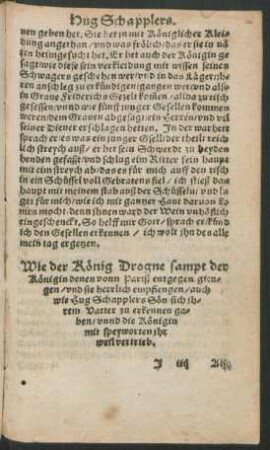 Hug Schapplers.
nen geben het. Sie het in mit Königlicher Klei-
dung angethan / vnd was frölich / das er sie in nö
ten heimgesucht het. Er het auch der Königin ge
sagt wie diese sein verkleidung mit wissen seines
Schwagers geschehen wer / vnd in das Läger / ihren
anschleg zu erkündigen / gangen wer / vnd also
in Graue Friderichs Gezelt kom̃en / alda zu tisch
gesessen / vnd wie fünff junger Gesellen kommen
weren / dem Grauen abgesagt ein Herren / vnd vil
seiner Diener erschlagen hetten. In der warheit
sprach er / es was ein junger Gsell / der theilt reich
lich streych auß / er het sein Schwerdt zu beyden
henden gefaßt / vnd schlug eim Ritter sein haupt
mit eim streych ab / das es für mich auff den tisch
in ein Schüssel voll Gebratens fiel / ich stieß das
haupt mit meinem stab auß der Schüsseln / vnd
ger für mich / wie ich mit gantzer Haut daruon ko
men mocht / denn ihnen ward der Wein vnhöflich
eingeschenckt. So helff mir Gott / sprach er / künd
ich den Gesellen erkennen / ich wolt ihn des alle
mein tag ergetzen.
Wie der König Drogue sampt der
Königin denen vonn Pariß entgegen gien-
gen / vnd sie herrlich empfiengen / auch
wie Hug Schapplers Sön sich ih-
rem Vatter zu erkennen ga-
ben / vnnd die Königin
mit speyworten ihr
weil vertrieb.
J iiij Als